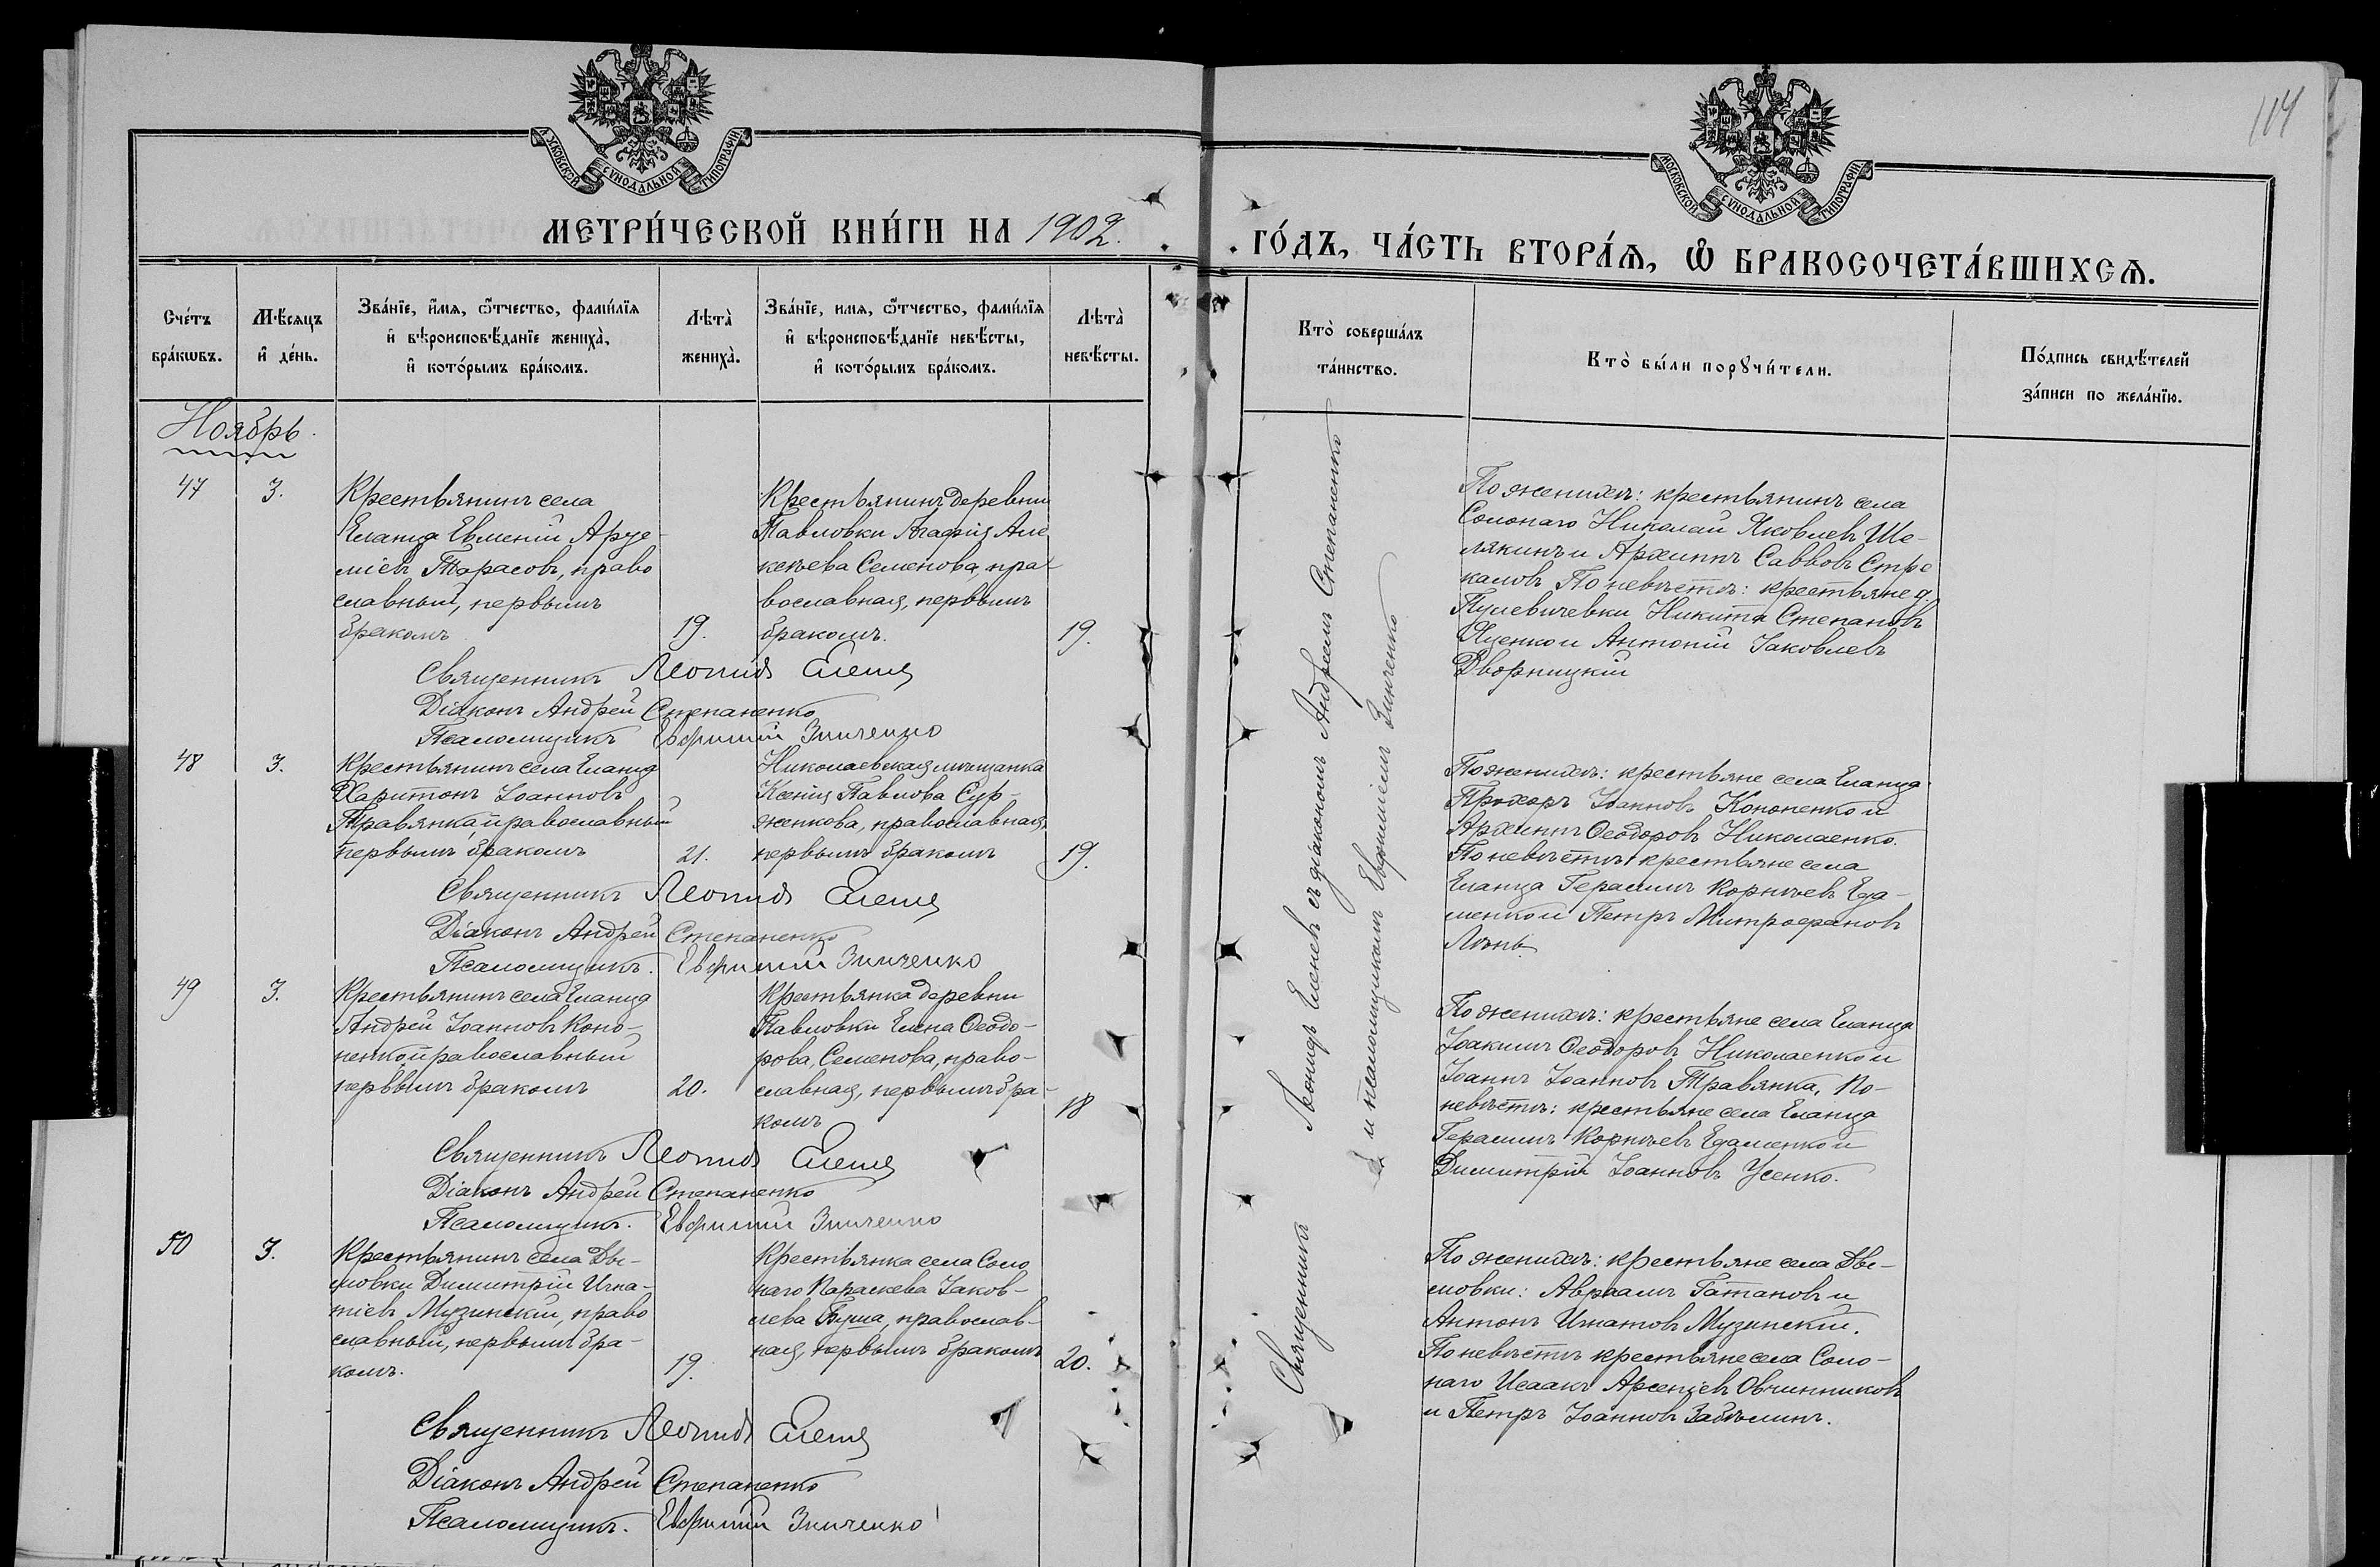 114
МОСКОВСКОЙ СѴНОДАЛЬНОЙ ТИПОГРАФІИ
МОСКОВСКОЙ СѴНОДАЛЬНОЙ ТИПОГРАФІИ
МЕТРИ́ЧЕСКОЙ КНИ́ГИ НА 1902.
ГО́ДЪ, ЧА́СТЬ ВТОРА́Ѧ, Ѽ БРАКОСОЧЕТА́ВШИХСѦ.
Сче́тъ бра́кѡвъ.
Мѣ́сяцъ и҆ де́нь.
Зва́нїе, и҆́мѧ, ѻ҆́тчество, фами́лїѧ и҆ вѣроисповѣ́данїе жениха̀, и҆ кото́рымъ бра́комъ.
Лѣта̀ жениха̀.
Зва́нїе, имѧ, ѻ҆́тчество, фами́лїѧ и҆ вѣроисповѣ́данїе невѣ́сты, и҆ кото́рымъ бра́комъ.
Лѣта̀ невѣ́сты.
Кто̀ соверша́лъ та́инство.
Кто̀ бы́ли порꙋчи́тели.
По́дпись свидѣ́телей за́писи по жела́нїю.
Ноябрь.
47
3.
Крестьянинъ села
Еланца Евменій Арте-
міевъ Тарасовъ, право
славный, первымъ
бракомъ
19.
Крестьянинъ деревни
Павловки Агафія Але
ксѣева Семенова, пра-
вославная, первымъ
бракомъ.
19.
По женихѣ: крестьянинъ села
Солонаго Николай Яковлевъ Ше-
лякинъ и Архиппъ Саввовъ Стре
каловъ По невѣстѣ: крестьяне д.
Пулевичевки Никита Степановъ
Яценко и Антоній Іаковлевъ
Дворницкій
Священникъ Леонидъ Еленев
Діаконъ Андрей Степаненко
Псаломщикъ Евфимій Зинченко
48
3.
Крестьянинъ села Еланца
Харитонъ Іоанновъ
Травянка, православный
первымъ бракомъ
21.
Николаевская мѣщанка
Ксенія Павлова Сур-
женкова, православная,
первымъ бракомъ
19.
По женихѣ: крестьяне села Еланца
Прохоръ Іоанновъ Кононенко и
Архиппъ Ѳеодоровъ Николаенко.
По невѣстѣ крестьяне села
Еланца Герасимъ Корнѣевъ Еда-
менко и Петръ Митрофановъ
Линь.
Священникъ Леонидъ Еленев
Діаконъ Андрей Степаненко
Псаломщикъ. Евфимій Зинченко
49
3.
Крестьянинъ села Еланца
Андрей Іоанновъ Коно-
ненко православный
первымъ бракомъ
20.
Крестьянка деревни
Павловки Елена Ѳеодо-
рова Семенова, право-
славная, первымъ бра-
комъ
18
По женихѣ: крестьяне села Еланца
Іоакимъ Ѳеодоровъ Николаенко и
Іоаннъ Іоанновъ Травянка, По-
невѣстѣ: крестьяне села Еланца
Герасимъ Корнѣевъ Едаменко и
Димитрій Іоанновъ Усенко.
Священникъ Леонидъ Еленев
Діаконъ Андрей Степаненко
Псаломщикъ. Евфимій Зинченко
50
3.
Крестьянинъ села Ды-
мовки Димитрій Игна-
тіевъ Музинскій, право
славный, первымъ бра-
комъ.
19.
Крестьянка села Соло
наго Параскева Іаков-
лева Буша, православ-
ная, первымъ бракомъ
20.
По женихѣ: крестьяне села Ды-
мовки: Авраамъ Татановъ и
Антонъ Игнатовъ Музинскій.
По невѣстѣ крестьяне села Соло-
наго Исаакъ Арсеніевъ Овчинниковъ
и Петръ Іоанновъ Забѣлинъ.
Священникъ Леонидъ Еленев
Діаконъ Андрей Степаненко
Псаломщикъ. Евфимій Зинченко
Священникъ Леонидъ Еленевъ съ діакономъ Андреемъ Степаненко
и псаломщикомъ Евфиміемъ Зинченко